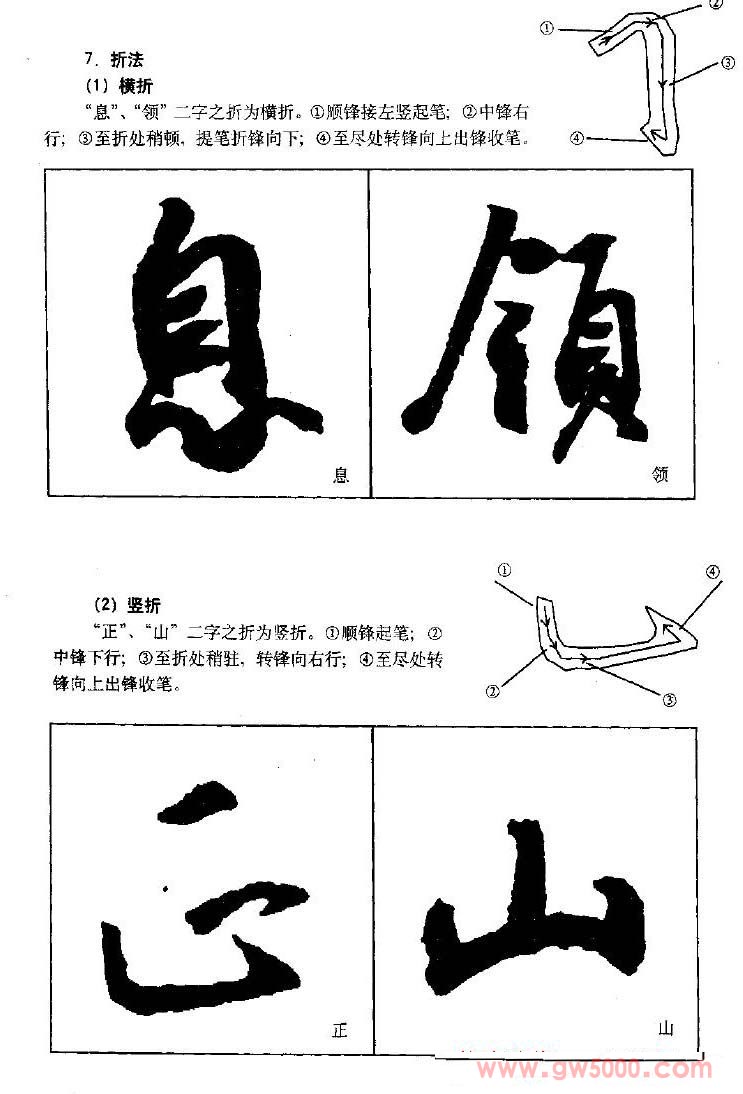 7. 折法
(1) 横折
“息”、“领”二字之折为横折。①顺锋接左竖起笔；②中锋右
行；③至折处稍顿，提笔折锋向下；④至尽处转锋向上出锋收笔。
① ② ③ ④
息 領
息 领
(2) 竖折
“正”、“山”二字之折为竖折。①顺锋起笔；②
中锋下行；③至折处稍驻，转锋向右行；④至尽处转
锋向上出锋收笔。
① ② ③ ④
正 山
正 山
www.gw5000.com